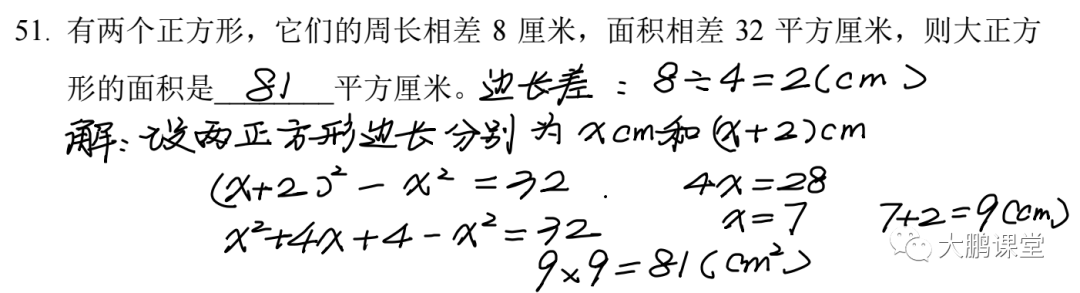 51. 有两个正方形，它们的周长相差 8 厘米，面积相差 32 平方厘米，则大正方
形的面积是 81 平方厘米。边长差：8÷4=2(cm)
解：设两正方形边长分别为 x cm和 (x+2)cm
(x+2)² - x² = 32 . 4x=28
x²+4x+4-x²=32 x=7 7+2=9(cm)
9×9=81(cm²) 大鹏课堂